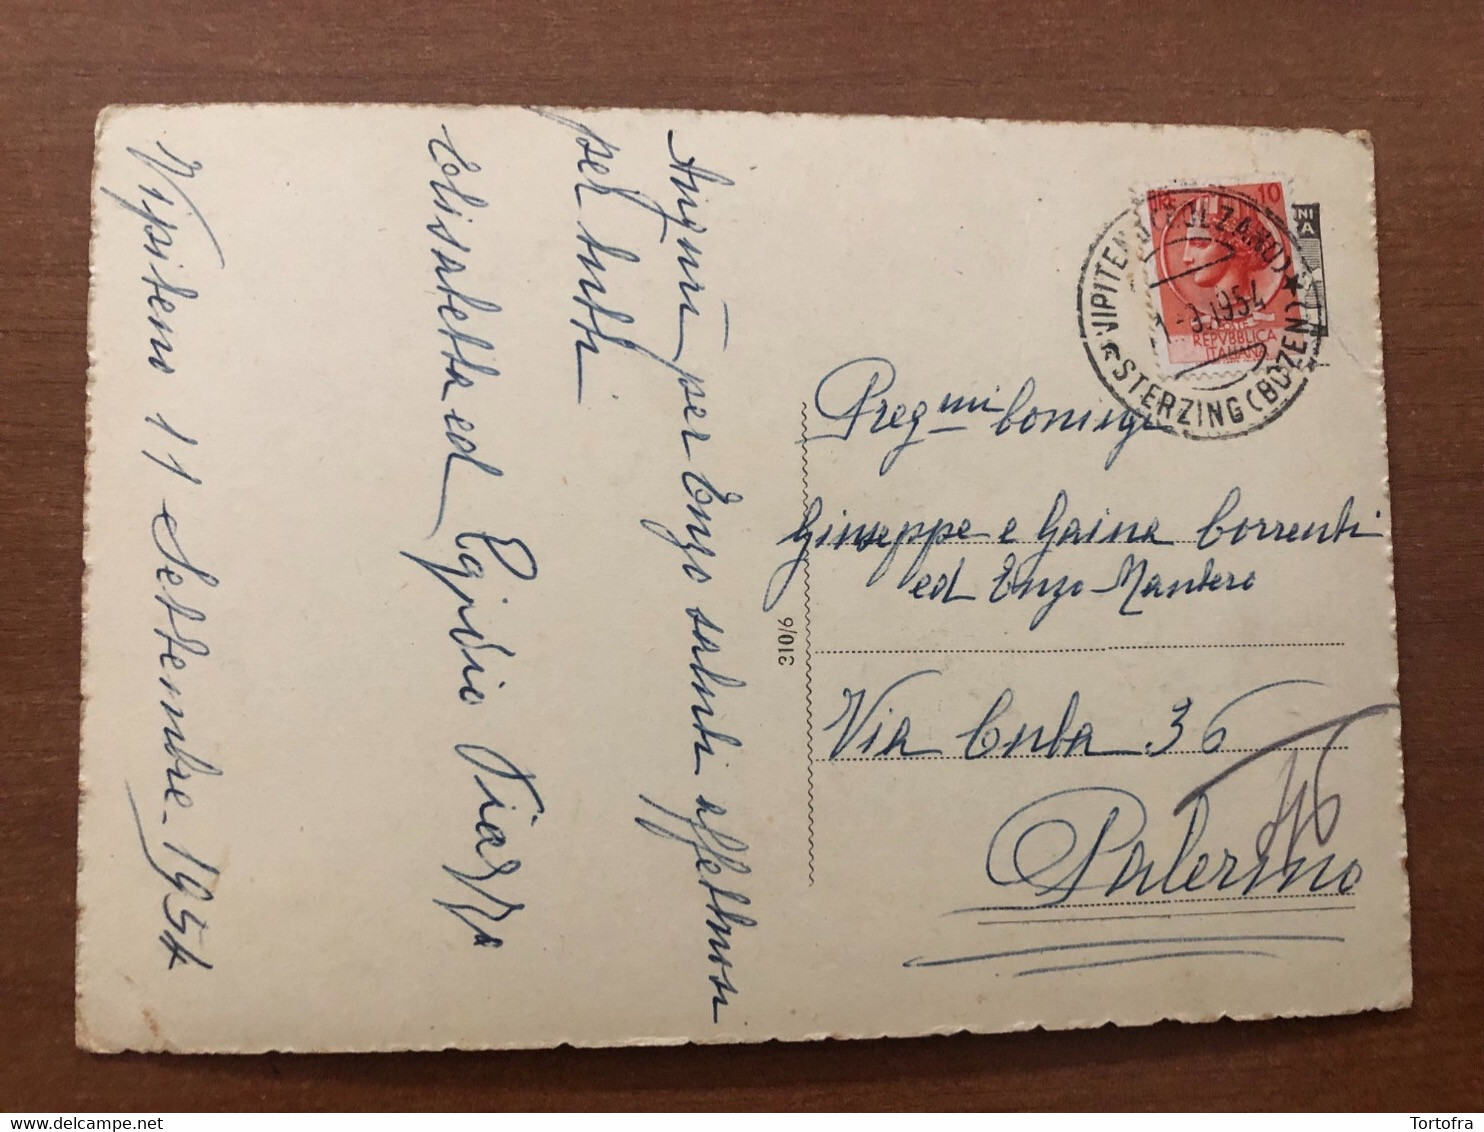 Vipiteno 11 Settembre 1954
Auguri per Enzo saluti affettuosi
per tutti
Elisabetta ed Egidio
LIRE 10
REPVBBLICA
ITALIANA
VIPITENO (BOLZANO)
-9.1954
STERZING (BOZEN)
NI
A
Preg mi Coniugi
Giuseppe e Gaina Correnti
ed Enzo Mantero
310/6
Via Cuba 36
46
Palermo
Tortofra